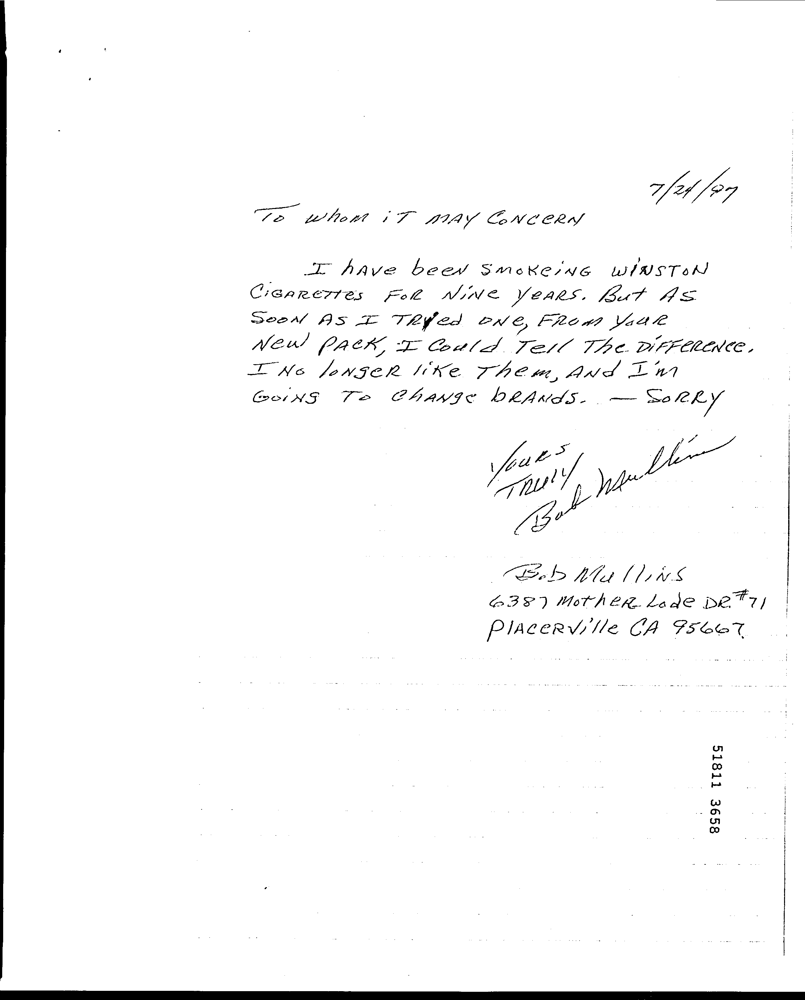 7/24/97
To whom iT MAY CONCERN
I hAve beeN SMoKeiNG WiNSTON
CiGARETTes FOR NiNe YeARS. But AS
SooN AS I TRyed ONe, FROM YouR
New PACK, I Could Tell The DiFFERENCe.
I No loNgeR liKe Them, ANd I'm
GoiNg To ChANge bRANdS. — SORRY
YouRS
TRuly
Bob Mullins
Bob MulliNS
6387 MotheR Lode DR. #71
PlACERVille CA 95667
51811 3658